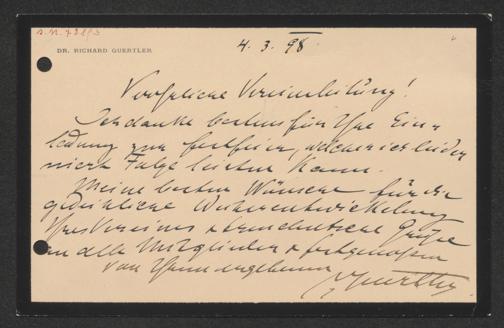 DR. RICHARD GUERTLER
4. 3. 98.
Verehrliche Vereinsleitung!
Ich danke bestens für Ihre Ein-
ladung zur festfeier, welcher ich leider
nicht Folge leisten kann.
Meine besten Wünsche für die
glückliche Weiterentwickelung
Ihres Vereines & treudeutsche Grüße
an alle Mitglieder & festgenossen
von Ihrem ergebenen
Guertler